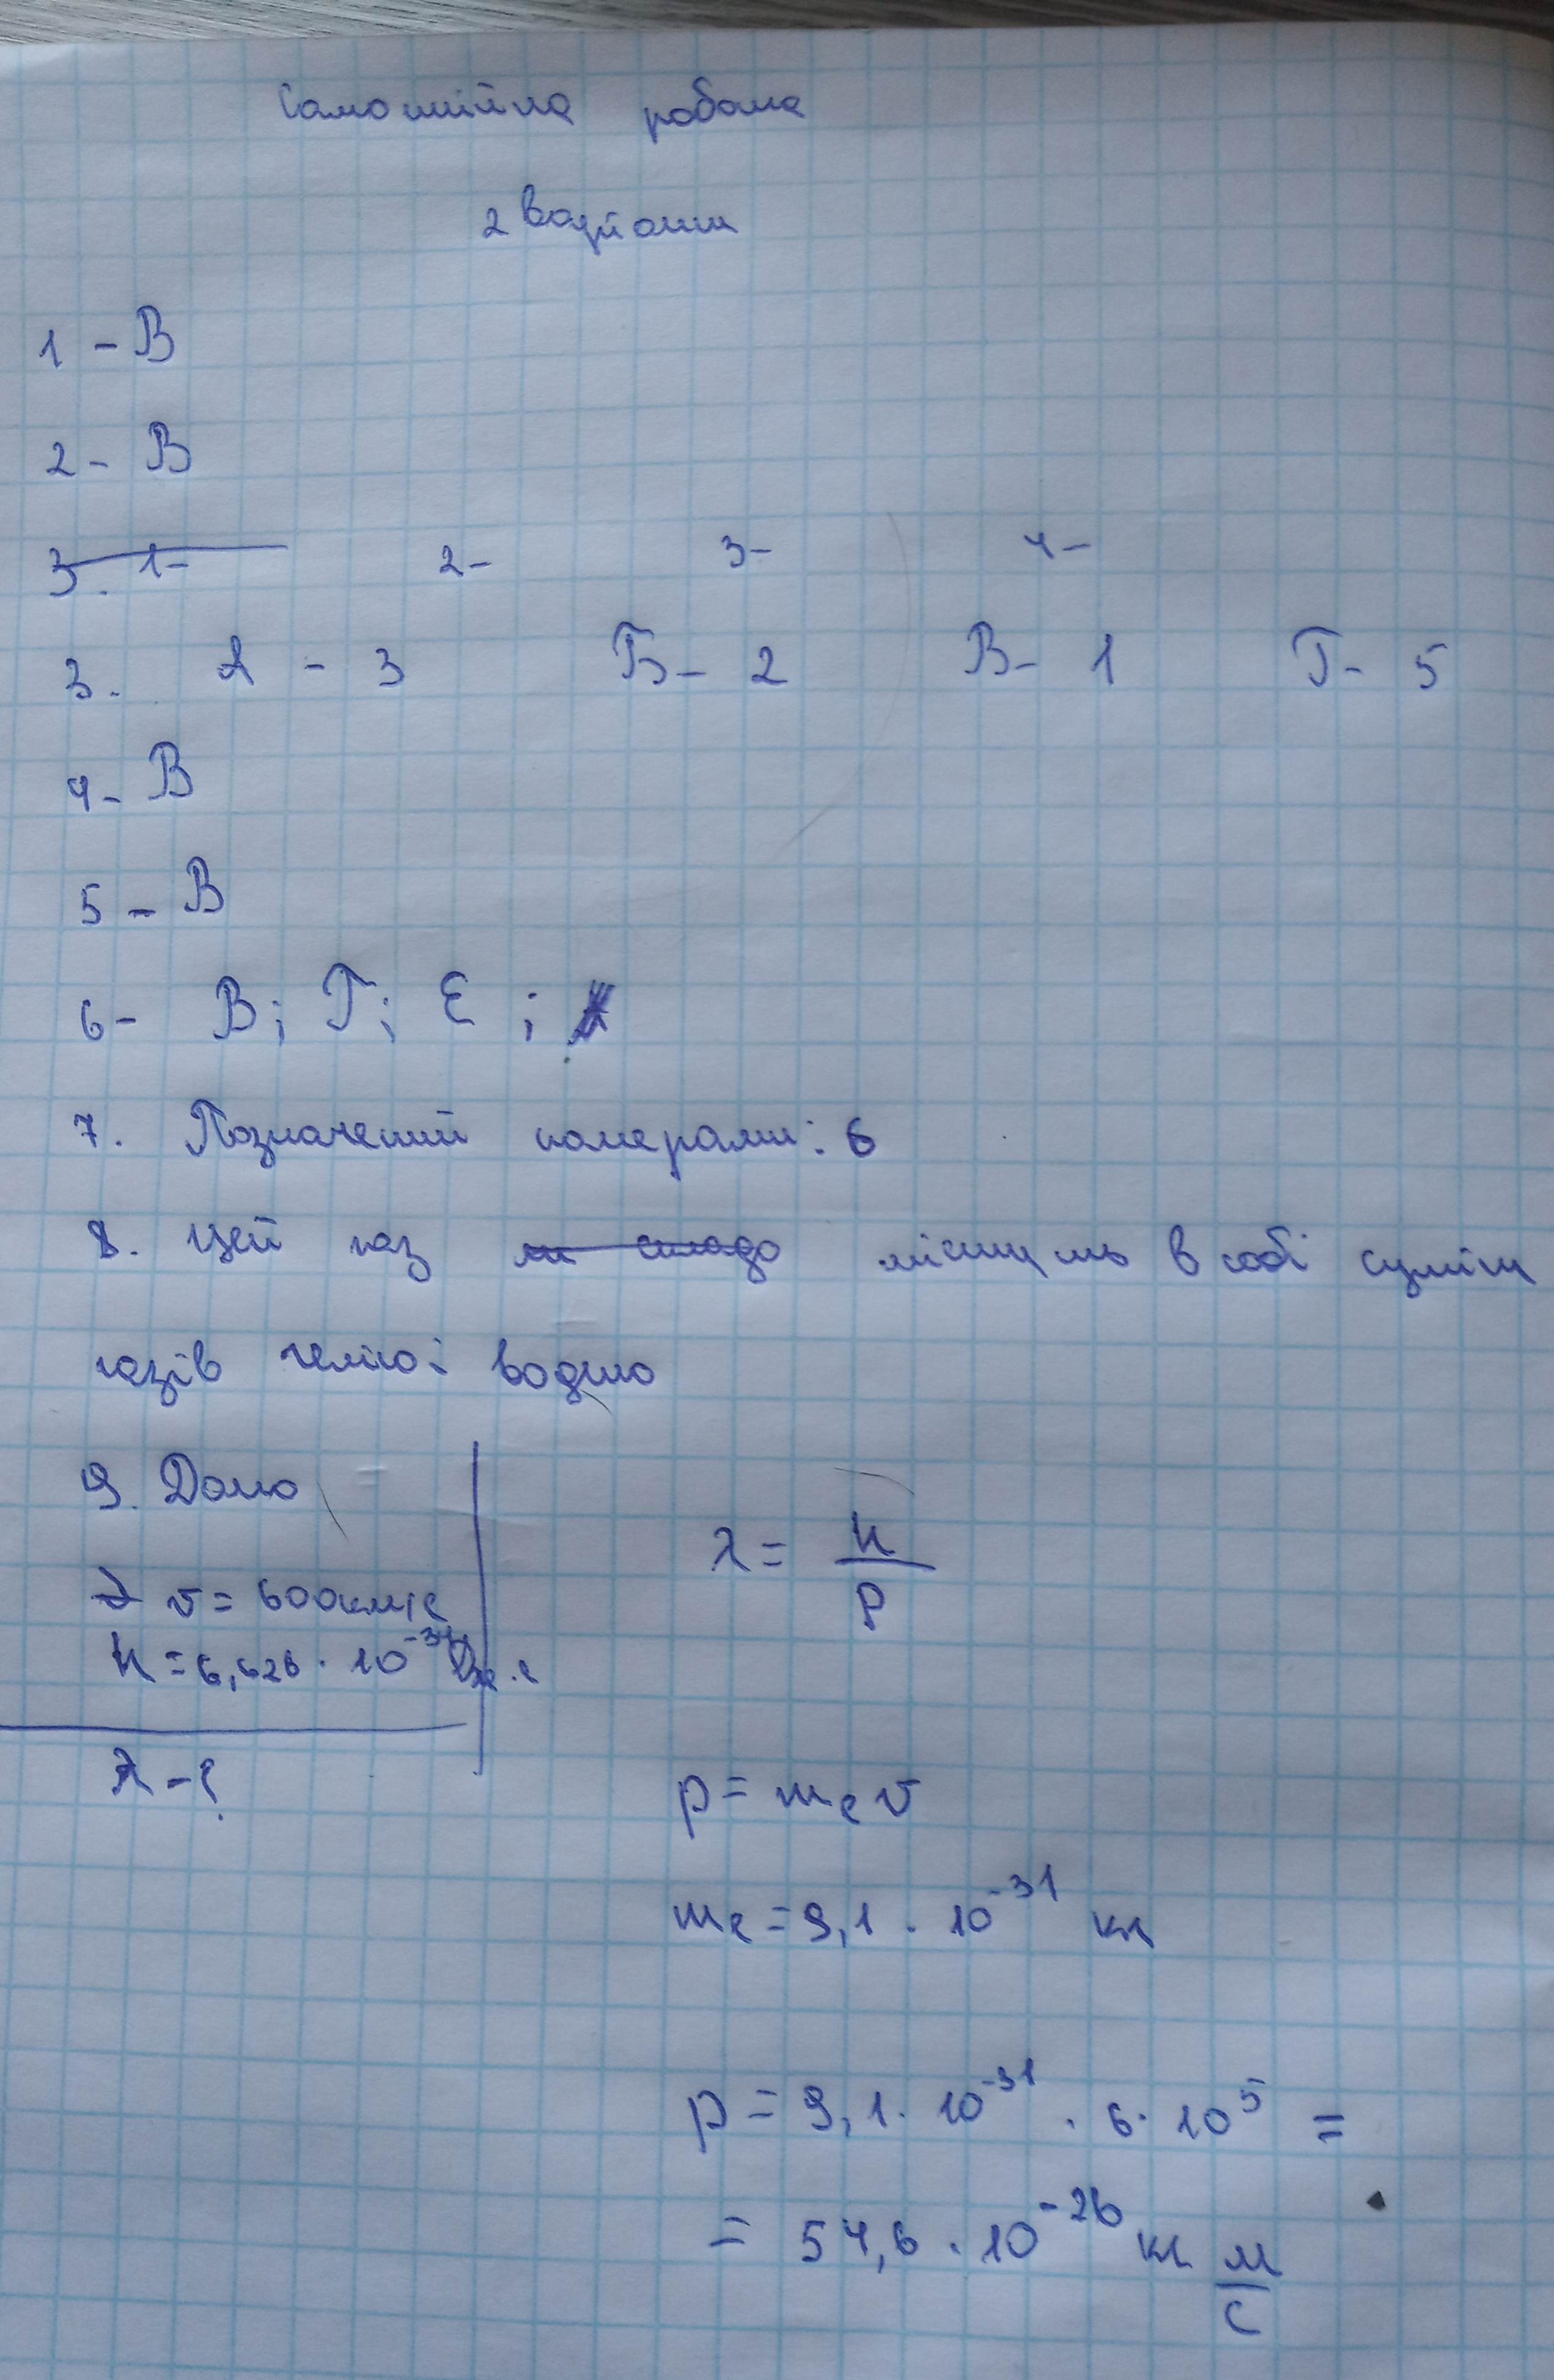 Самостійна робота
2 варіант
1 - В
2 - В
3. 1- 2- 3- 4-
3. А - 3 Б - 2 В - 1 Г - 5
4 - В
5 - В
6 - В; Г; Е ;
7. Позначений номерами: 6
8. Цей газ містить в собі суміш
газів гелію і водню
9. Дано
v = 600км/с
h = 6,626 · 10⁻³⁴ Дж·с
λ - ?
λ = h/p
p = mₑv
mₑ = 9,1 · 10⁻³¹ кг
p = 9,1 · 10⁻³¹ · 6 · 10⁵ =
= 54,6 · 10⁻²⁶ кг м/с